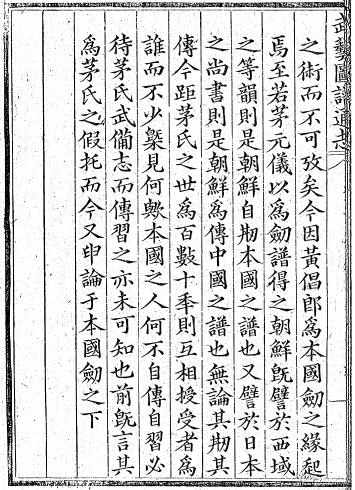 武藝圖譜通志
之術而不可攷矣今因黃倡郎爲本國劒之緣起
焉至若茅元儀以爲劒譜得之朝鮮旣譬於西域
之等韻則是朝鮮自刱本國之譜也又譬於日本
之尚書則是朝鮮爲傳中國之譜也無論其刱其
傳今距茅氏之世爲百數十秊則互相授受者爲
誰而不少槩見何歟本國之人何不自傳自習必
待茅氏武備志而傳習之亦未可知也前旣言其
爲茅氏之假托而今又申論于本國劒之下